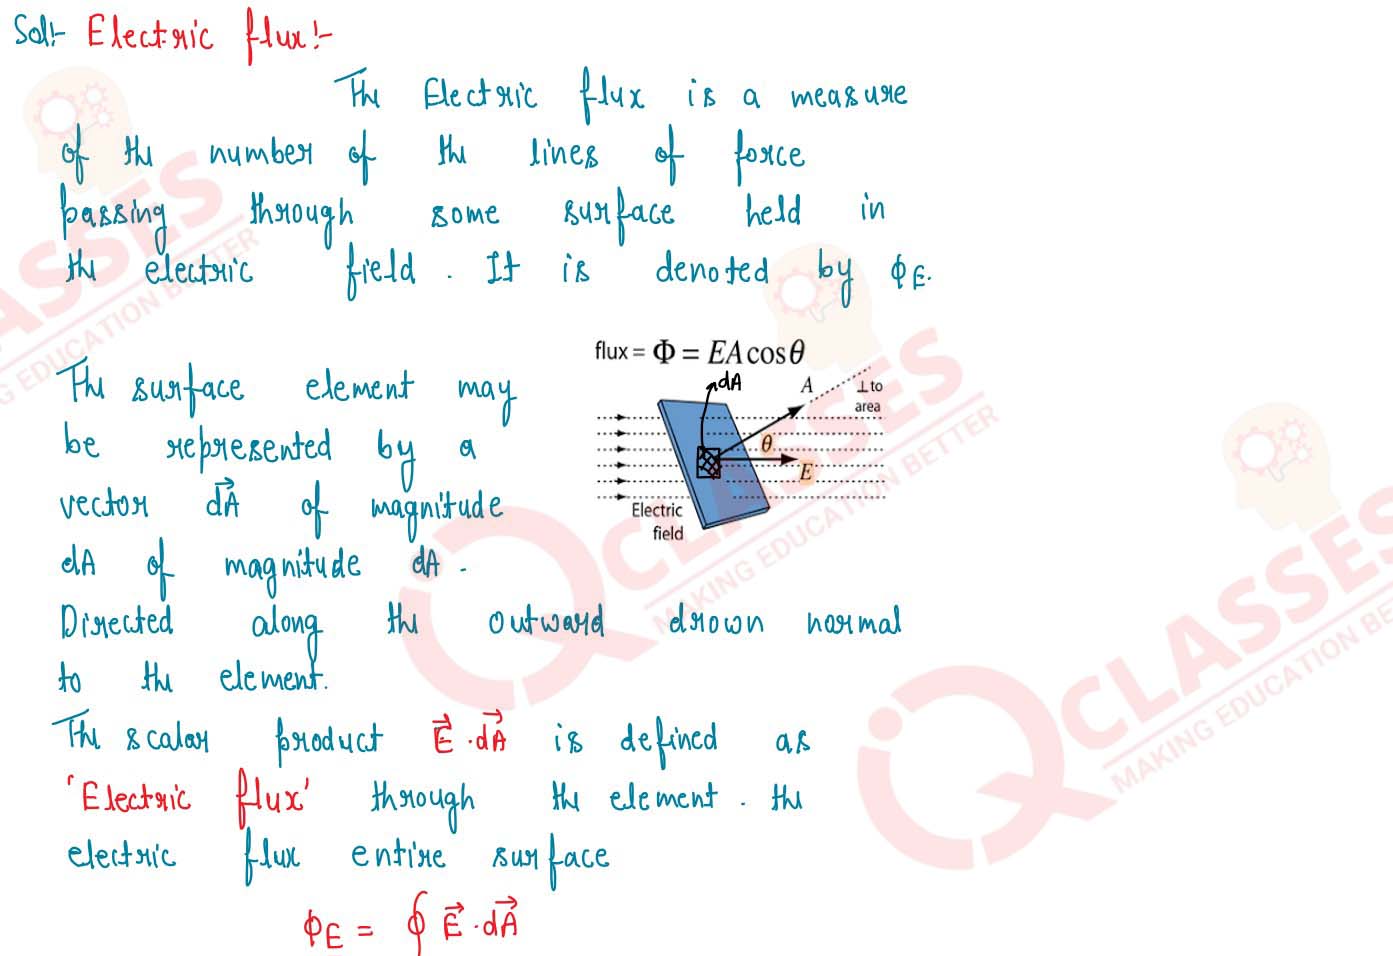 Sol:- Electric flux:-
The Electric flux is a measure
of the number of the lines of force
passing through some surface held in
the electric field. It is denoted by ϕE.
flux = Φ = EA cos θ
dA
A
⊥ to
area
θ
E
Electric
field
The surface element may
be represented by a
vector d\vec{A} of magnitude
dA of magnitude dA.
Directed along the outward drown normal
to the element.
The scalar product \vec{E}.d\vec{A} is defined as
'Electric flux' through the element. the
electric flux entire surface
ϕE = ∮ \vec{E}.d\vec{A}
CLASSES
MAKING EDUCATION BETTER
CLASSES
MAKING EDUCATION BETTER
ASSES
NG EDUCATION BETTER